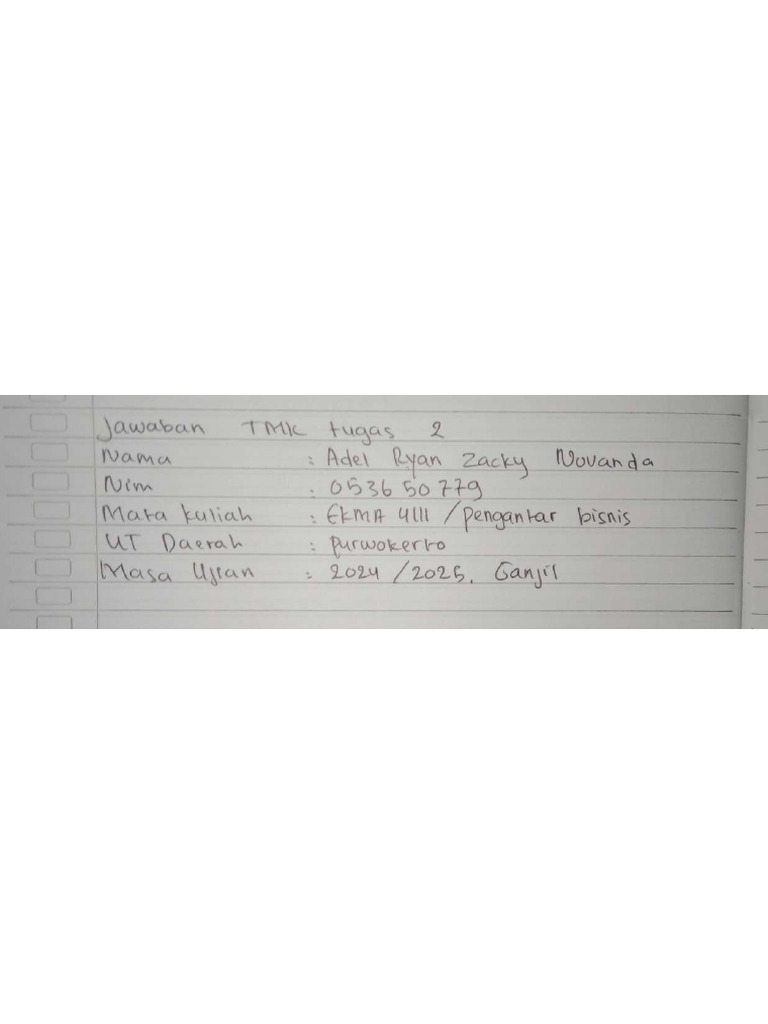 Jawaban TMK tugas 2
Nama : Adel Ryan Zacky Novanda
Nim : 053650779
Mata kuliah : EKMA 4111 / pengantar bisnis
UT Daerah : purwokerto
Masa Ujian : 2024 / 2025. Ganjil